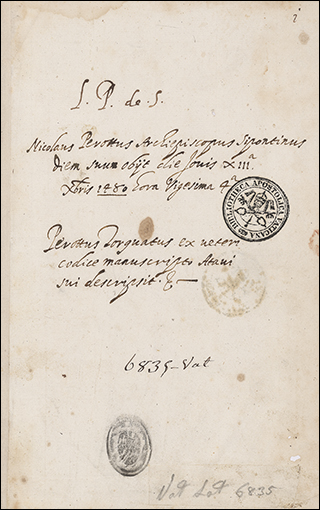 2
L. P. de S.
Nicolaus Perottus Archiepiscopus Sipontinus
diem suum obijt die Jovis XIIIᵃ
Xbris 1480 hora Vigesima 4ᵃ
BIBLIOTHECA APOSTOLICA VATICANA
Perottus Torquatus ex veteri
codice manuscripto Atavi
sui descripsit. &
6835-Vat
Vat Lat 6835